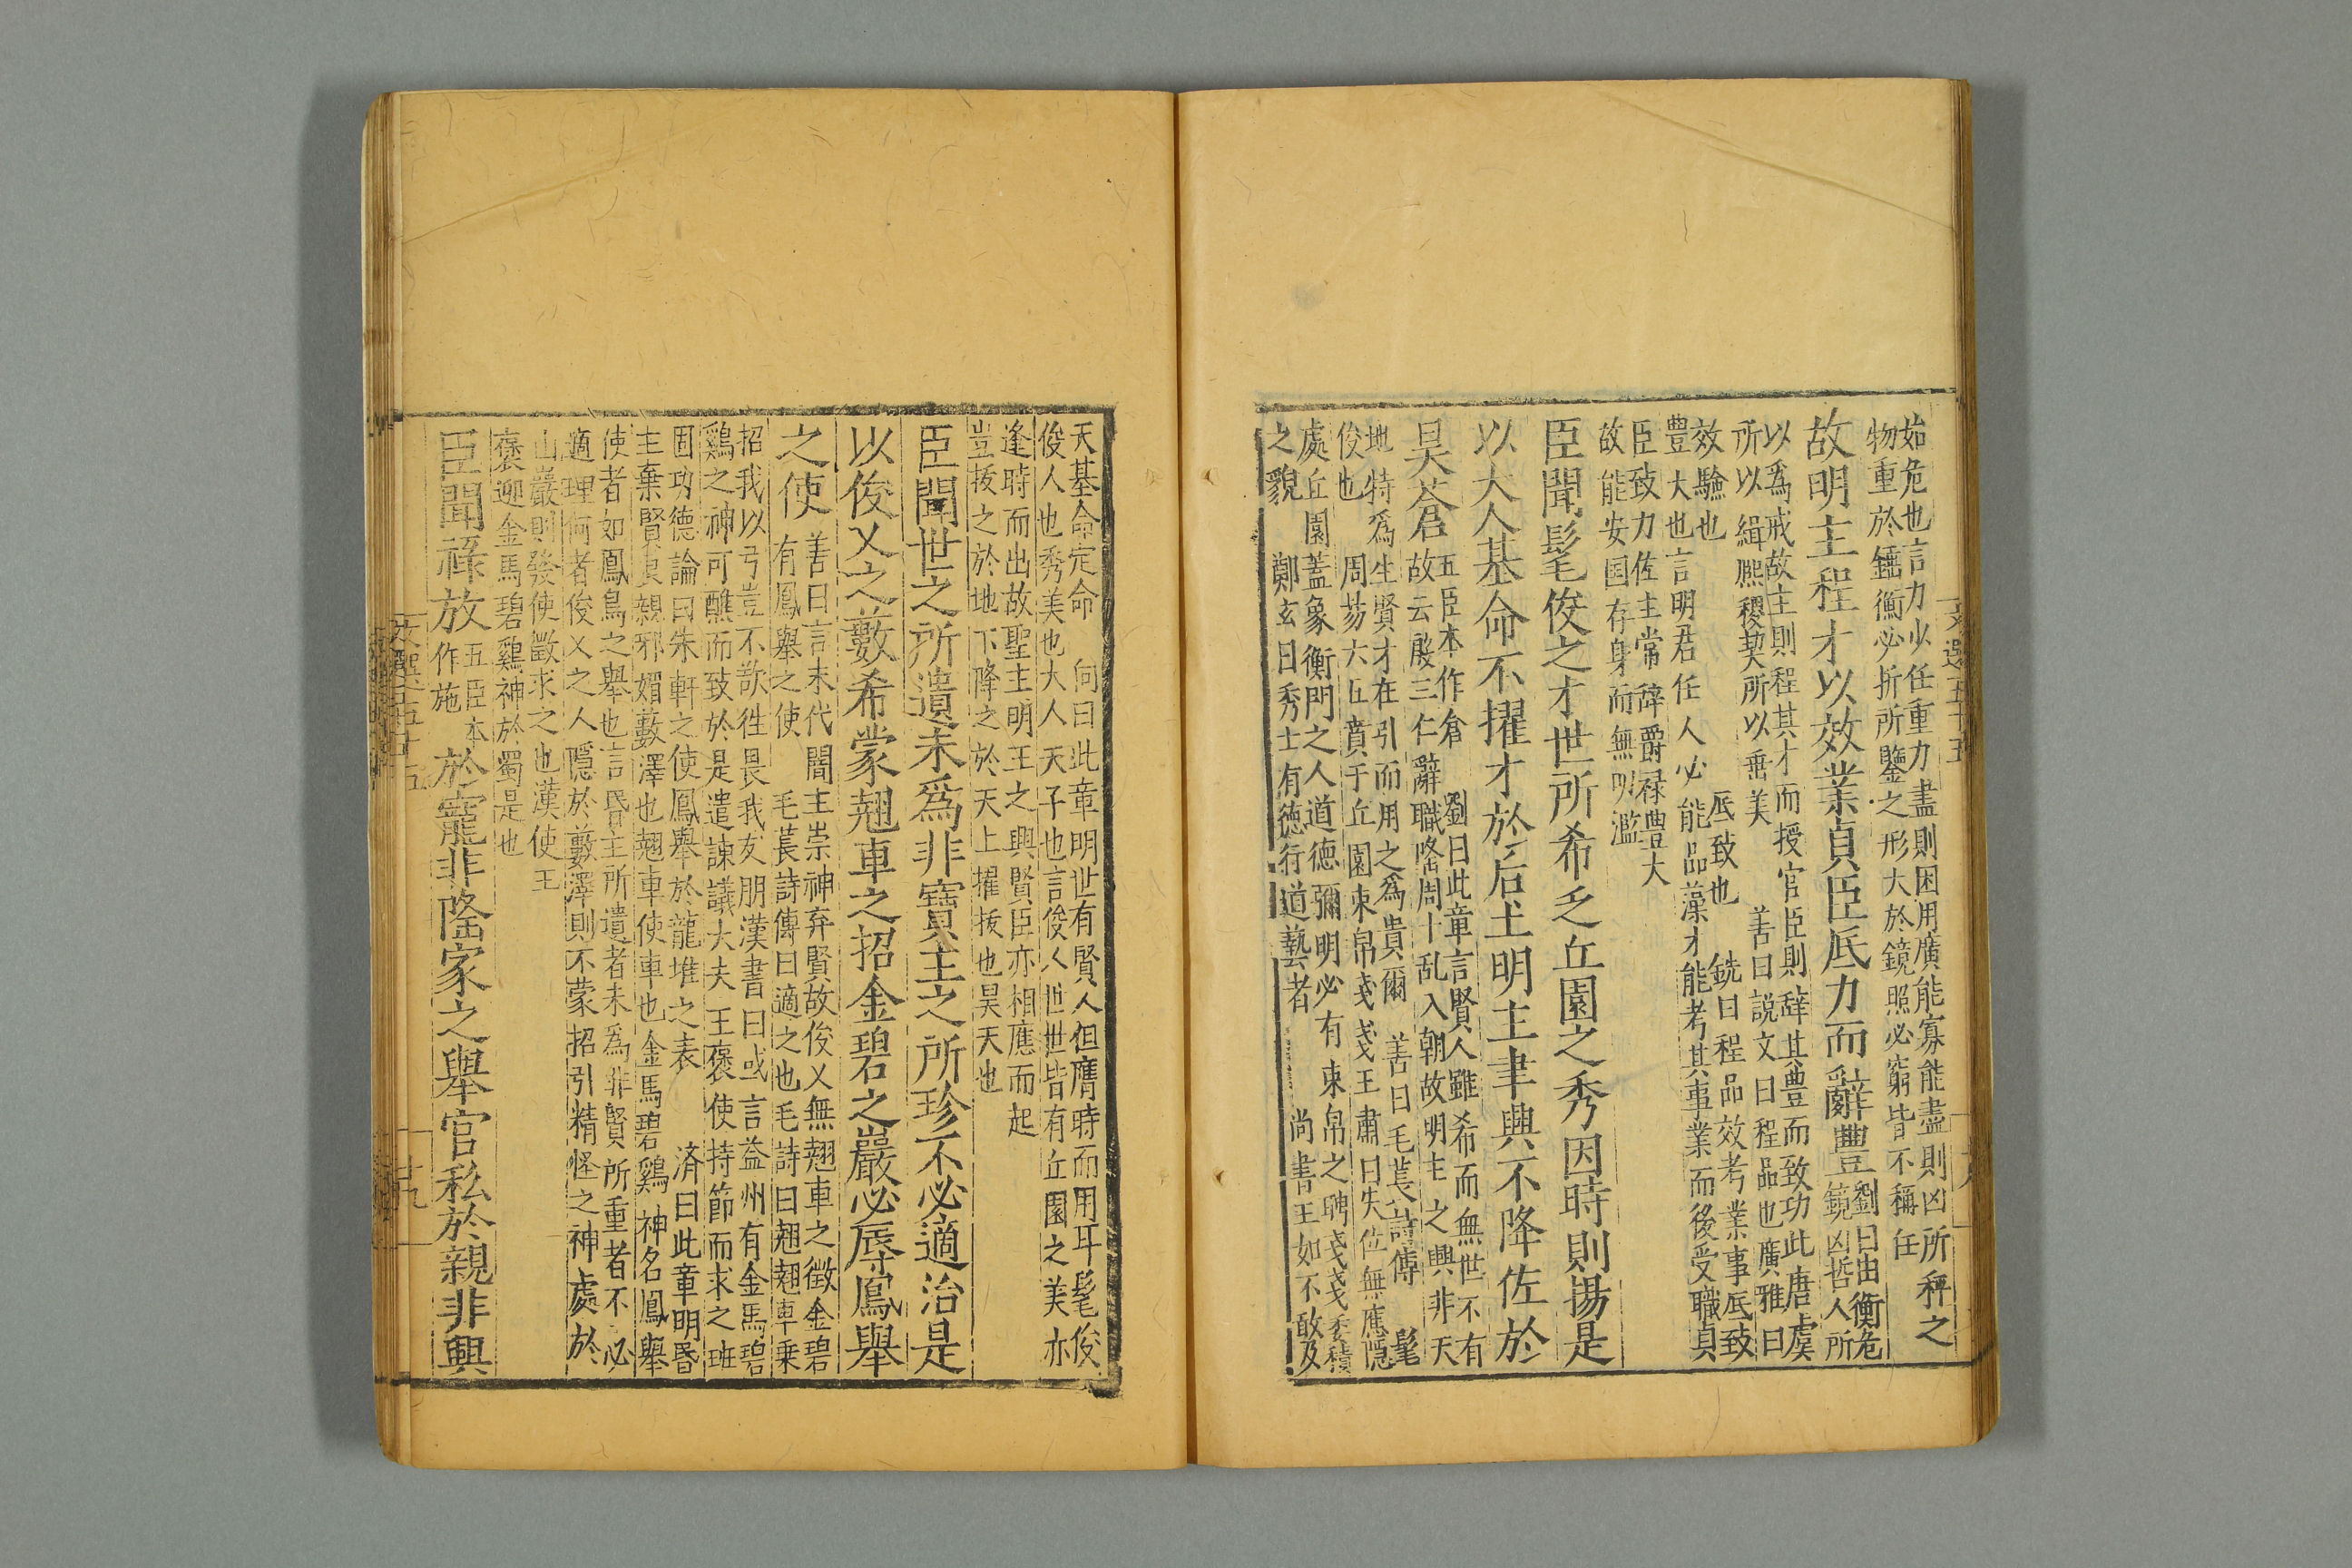 茹危也言力少任重力盡則困用廣能寡能盡則凶所秤之
物重於鍾衡必折所鑒之形大於鏡照必窮皆不稱任
故明主程才以效業貞臣底力而辭豐
劉曰由衡危
鏡凶哲人所
以爲戒故主則程其才而授官臣則辭其豊而致功此唐虞
所以緝熈稷契所以垂美 善曰說文曰程品也廣雅曰
效驗也 底致也 銑曰程品效考業事底致
豊大也言明君任人必能品藻才能考其事業而後受職貞
臣致力佐主常辞爵禄豊大
故能安国存身而無明濫
臣聞髦俊之才世所希乏丘園之秀因時則揚是
以大人基命不擢才於后土明主聿興不降佐於
昊蒼
五臣本作倉 劉曰此章言賢人雖希而無世不有
故云殷三仁辭職啓周十乱入朝故明主之興非天
地特爲生賢才在引而用之爲貴爾 善曰毛萇詩傳 髦
俊也 周昜六五賁于丘園束帛戔戔王肅曰失位無應隠
處丘園蓋象衡門之人道德彌明必有束帛之聘戔戔委積
之貌 鄭玄曰秀士有德行道藝者 尚書王如不敢及
文選五十五
十九
天基命定命 向曰此章明世有賢人但膺時而用耳髦俊
俊人也秀美也大人天子也言俊人世世皆有丘園之美亦
逢時而出故聖主明王之興賢臣亦相應而起
豈拔之於地下降之於天上擢拔也昊天也
臣聞世之所遺未爲非寶主之所珍不必適治是
以俊乂之藪希蒙翹車之招金碧之巖必辱鳳舉
之使
善曰言末代闇主崇神弃賢故俊乂無翹車之徵金碧
有鳳舉之使 毛萇詩傳曰適之也毛詩曰翹翹車乗
招我以弓豈不欲徃畏我友朋漢書曰或言益州有金馬碧
鷄之神可醮而致於是遣諫議大夫王褒使持節而求之班
固功德論曰朱軒之使鳳舉於龍堆之表 濟曰此章明昏
主棄賢良親邪媚藪澤也翹車使車也金馬碧鷄神名鳳舉
使者如鳳鳥之舉也言昏主所遺者未爲非賢所重者不必
適理何者俊乂之人隠於藪澤則不蒙招引精怪之神處於
山巖則發使徵求之也漢使王
褒迎金馬碧鷄神於蜀是也
臣聞祿放
五臣本
作施
於寵非隆家之舉官私於親非興
文選五十五
十九